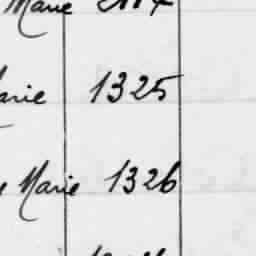 Marie
arie 1325
Marie 1326